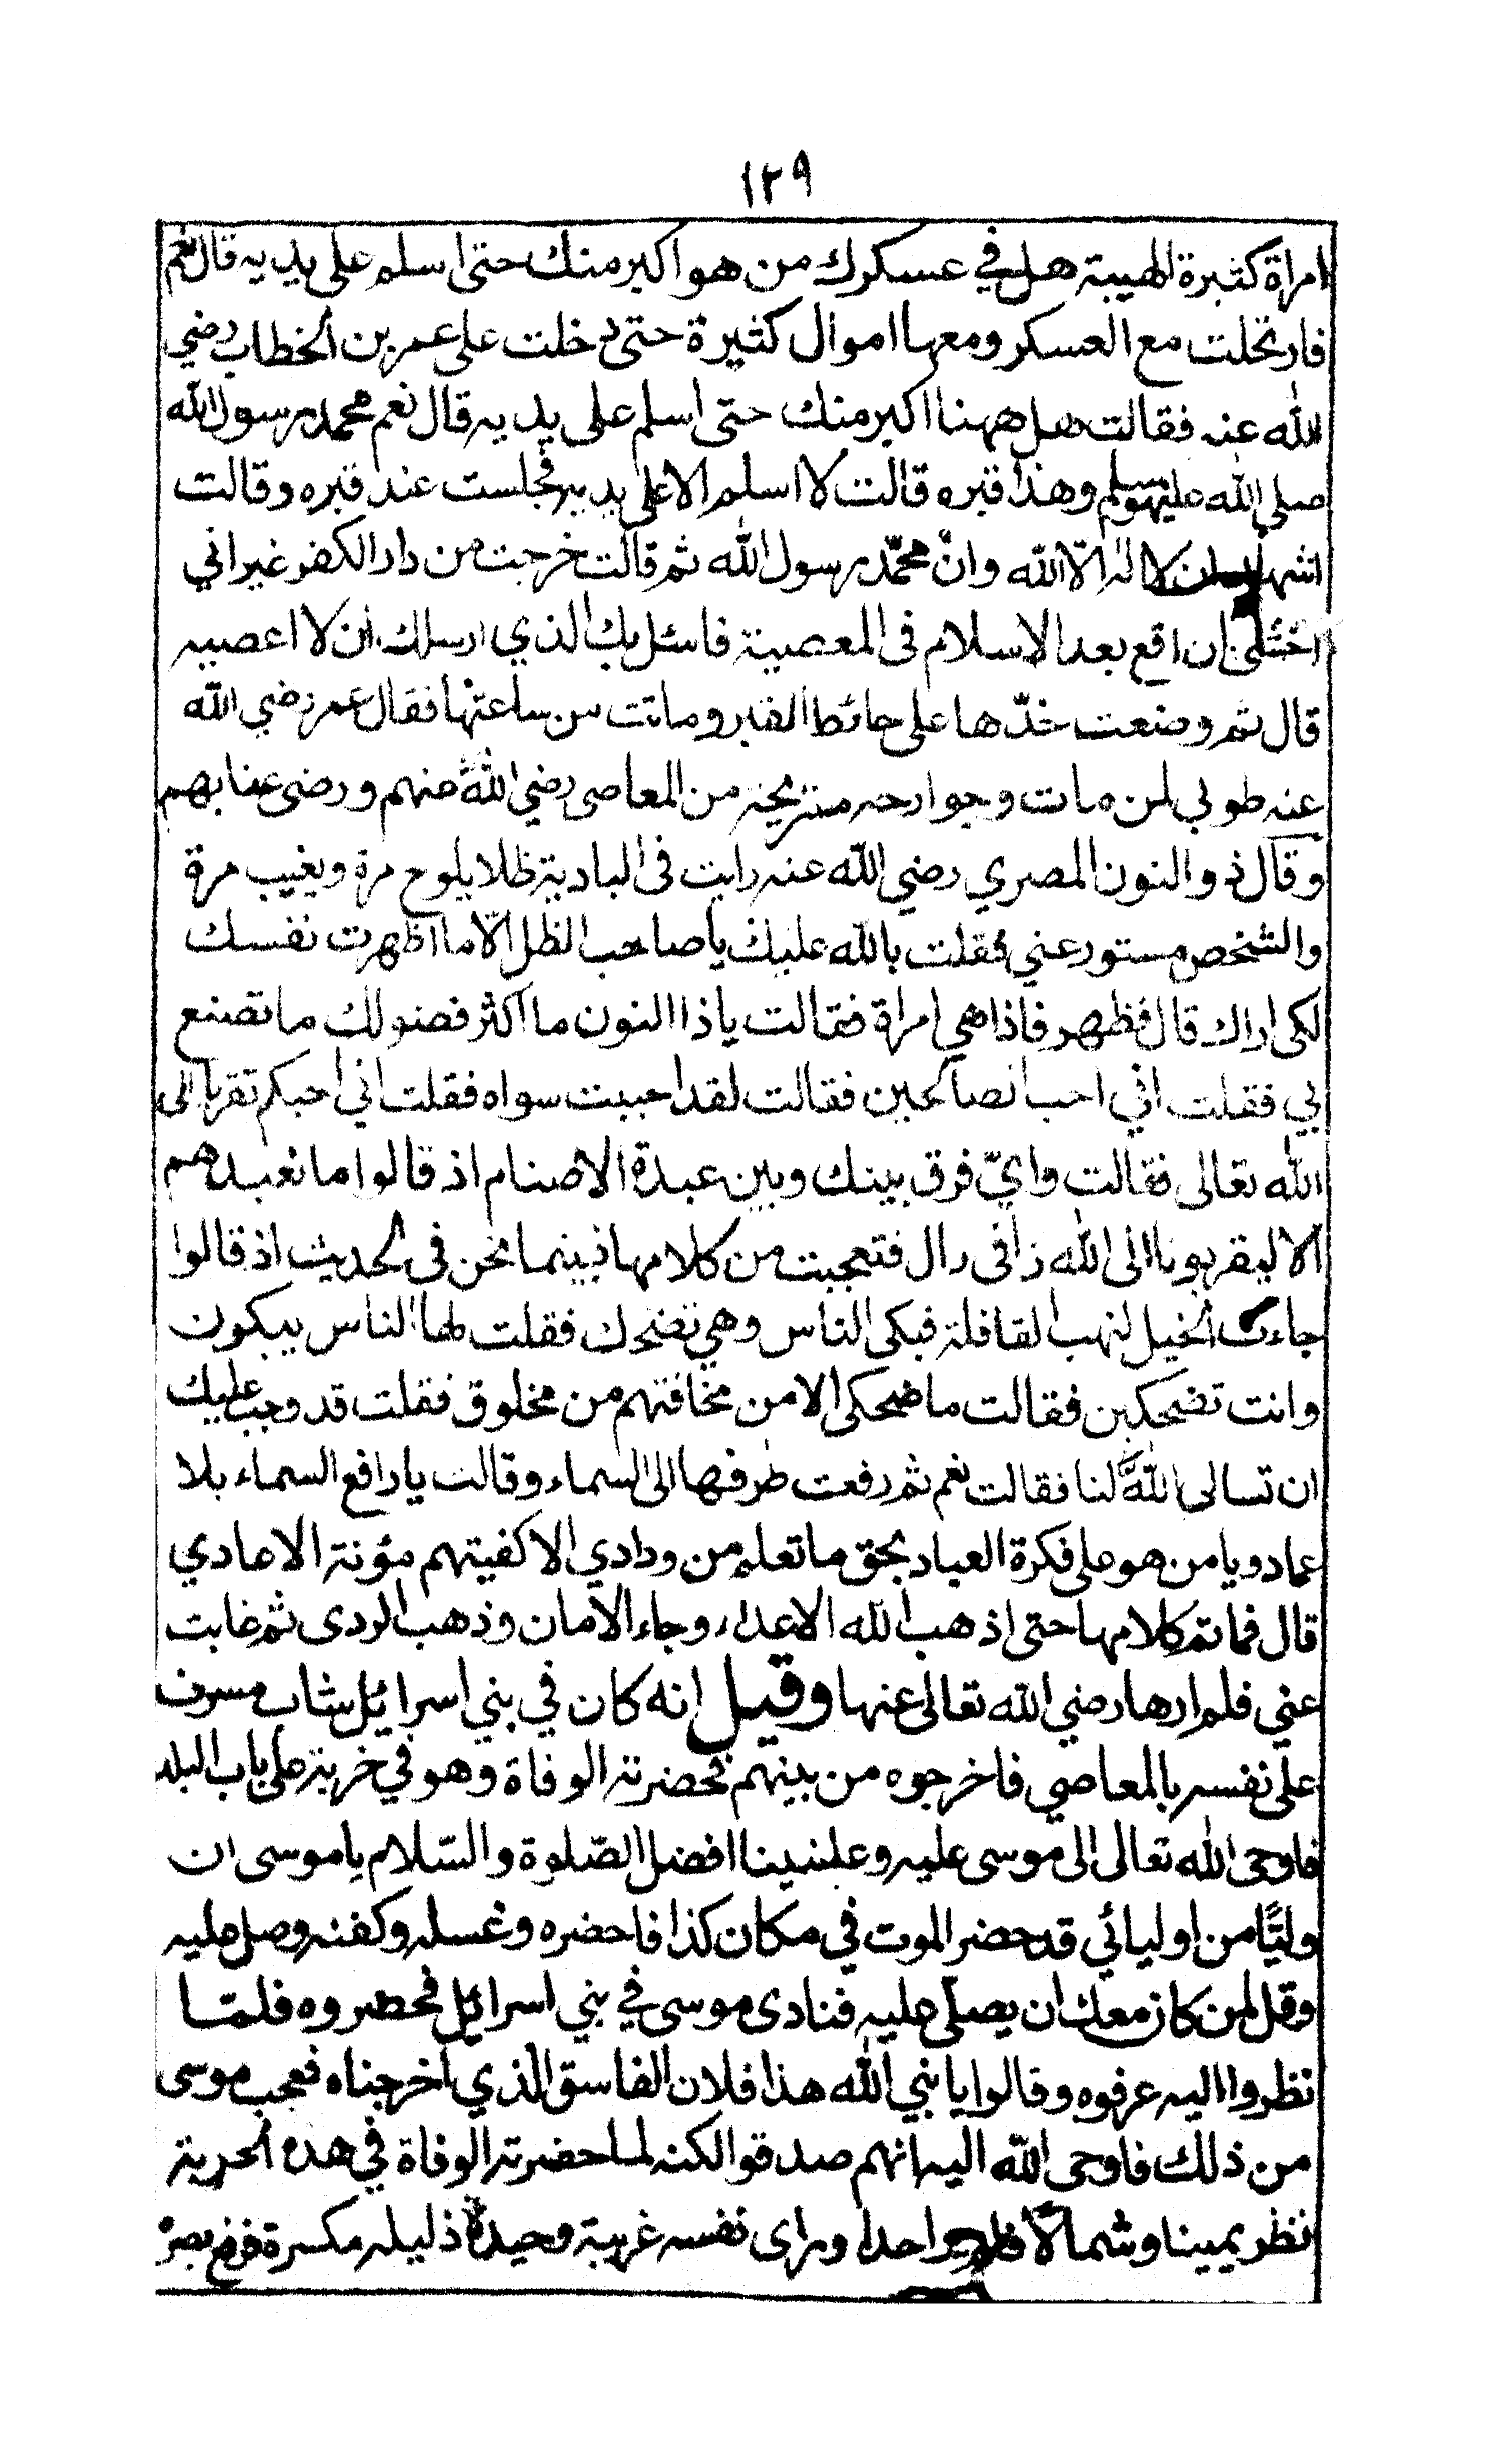 ١٢٩
امراة كثيرة الهيبة هل في عسكرك من هو اكبر منك حتى اسلم على يديه قال نعم
فارتحلت مع العسكر ومعها اموال كثيرة حتى دخلت على عمر بن الخطاب رضي
الله عنه فقالت هل ههنا اكبر منك حتى اسلم على يديه قال نعم محمد رسول الله
صلى الله عليه وسلم وهذا قبره قالت لا اسلم الا على يديه فجلست عند قبره وقالت
اشهد ان لا اله الّا الله وانّ محمّد رسول الله ثم قالت خرجت من دار الكفر غير اني
اخشى ان اقع بعد الاسلام فى المعصية فاسئل بك الذي ارسلك ان لا اعصيه
قال ثم وضعت خدّها على حائط القبر وماتت من ساعتها فقال عمر رضي الله
عنه طوبي لمن مات وجوارحه مستريحة من المعاصى رضي الله عنهم ورضى عنا بهم
وقال ذو النون المصري رضي الله عنه رايت فى البادية ظلا يلوح مرة ويغيب مرة
والشخص مستور عني فقلت بالله عليك يا صاحب الظل الّا ما اظهرت نفسك
لكى اراك قال فظهر فاذا هي امراة فقالت يا ذا النون ما اكثر فضولك ما تصنع
بي فقلت اني احب الصالحين فقالت لقد احببت سواه فقلت اني احبكم تقربا الى
الله تعالى فقالت وايّ فرق بينك وبين عبدة الاصنام اذ قالوا ما نعبدهم
الا ليقربونا الى الله زلفى قال فتعجبت من كلامها فبينما نحن فى الحديث اذ قالوا
جاءت الخيل لنهب القافلة فبكى الناس وهي تضحك فقلت لها الناس يبكون
وانت تضحكين فقالت ما ضحكى الا من مخافتهم من مخلوق فقلت قد وجب عليك
ان تسالى الله لنا فقالت نعم ثم رفعت طرفها الى السماء وقالت يا رافع السماء بلا
عماد ويا من هو على فكرة العباد بحق ما تعلم من ودادي الا كفيتهم مؤنة الاعادي
قال فما تم كلامها حتى اذهب الله الاعداء وجاء الامان وذهب الردى ثم غابت
عني فلم ارها رضي الله تعالى عنها وقيل انه كان في بني اسرائيل شاب مسرف
على نفسه بالمعاصي فاخرجوه من بينهم فحضرته الوفاة وهو في خربة على باب البلد
فاوحى الله تعالى الى موسى عليه وعلى نبينا افضل الصّلوة والسّلام يا موسى ان
وليًّا من اوليائي قد حضر الموت في مكان كذا فاحضره وغسله وكفنه وصل عليه
وقل لمن كان معك ان يصلّى عليه فنادى موسى في بني اسرائيل فحضروه فلمّا
نظروا اليه عرفوه وقالوا يا نبي الله هذا فلان الفاسق الذي اخرجناه فعجب موسى
من ذلك فاوحى الله اليه انهم صدقوا لكنه لما حضرته الوفاة في هذه الخربة
نظر يمينا وشمالّا فلم ير احدا وراى نفسه غريبة وحيدة ذليله مكسرة فرفع بصره